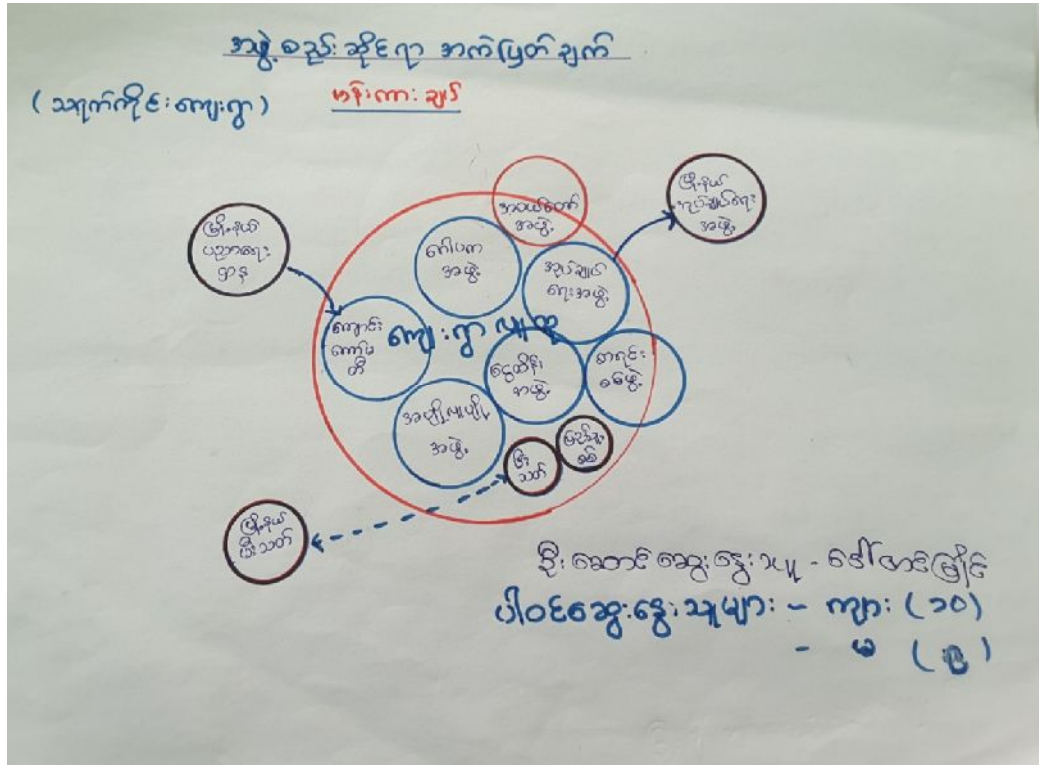 အဖွဲ့စည်းဆိုင်ရာ အကဲဖြတ်ချက်
(သရက်ကိုင်းကျေးရွာ)
ဟန်းကားချပ်
အဝယ်တော်
အဖွဲ့
မြို့နယ်
အုပ်ချုပ်ရေး
အဖွဲ့
မြို့နယ်
ပညာရေး
ဌာန
ဂေါပက
အဖွဲ့
အုပ်ချုပ်
ရေးအဖွဲ့
ကျောင်း
ကော်မ
တီ
ကျေးရွာလူထု
ငွေထိန်း
အဖွဲ့
စာရင်း
စစ်ဖွဲ့
အပျိုလူပျို
အဖွဲ့
မီး
သတ်
ပြည်သူ့
စစ်
မြို့နယ်
မီးသတ်
ဦးဆောင်ဆွေးနွေးသူ - ဒေါ်
ပါဝင်ဆွေးနွေးသူများ - ကျား (၁၀)
- မ